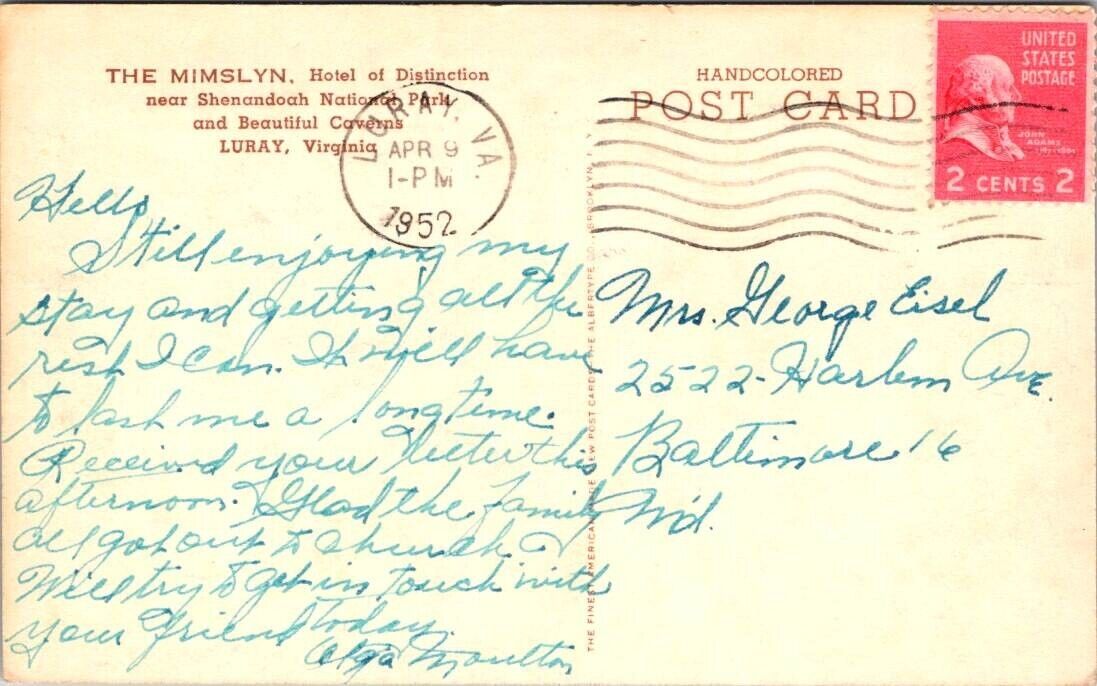 THE MIMSLYN, Hotel of Distinction
near Shenandoah National Park
and Beautiful Caverns
LURAY, Virginia
LURAY, VA.
APR 9
1-PM
1952
HANDCOLORED
POST CARD
UNITED
STATES
POSTAGE
JOHN
ADAMS
2 CENTS 2
Hello
Still enjoying my
stay and getting all the
rest I can. It will have
to last me a long time.
Received your letter this
afternoon. Glad the family
all got out to church
Will try to get in touch with
your friend today.
Olga Moulton
THE FINEST AMERICAN MADE VIEW POST CARDS THE ALBERTYPE CO., BROOKLYN, N.Y.
Mrs. George Eisel
2522 - Harlem Ave.
Baltimore 16
Md.